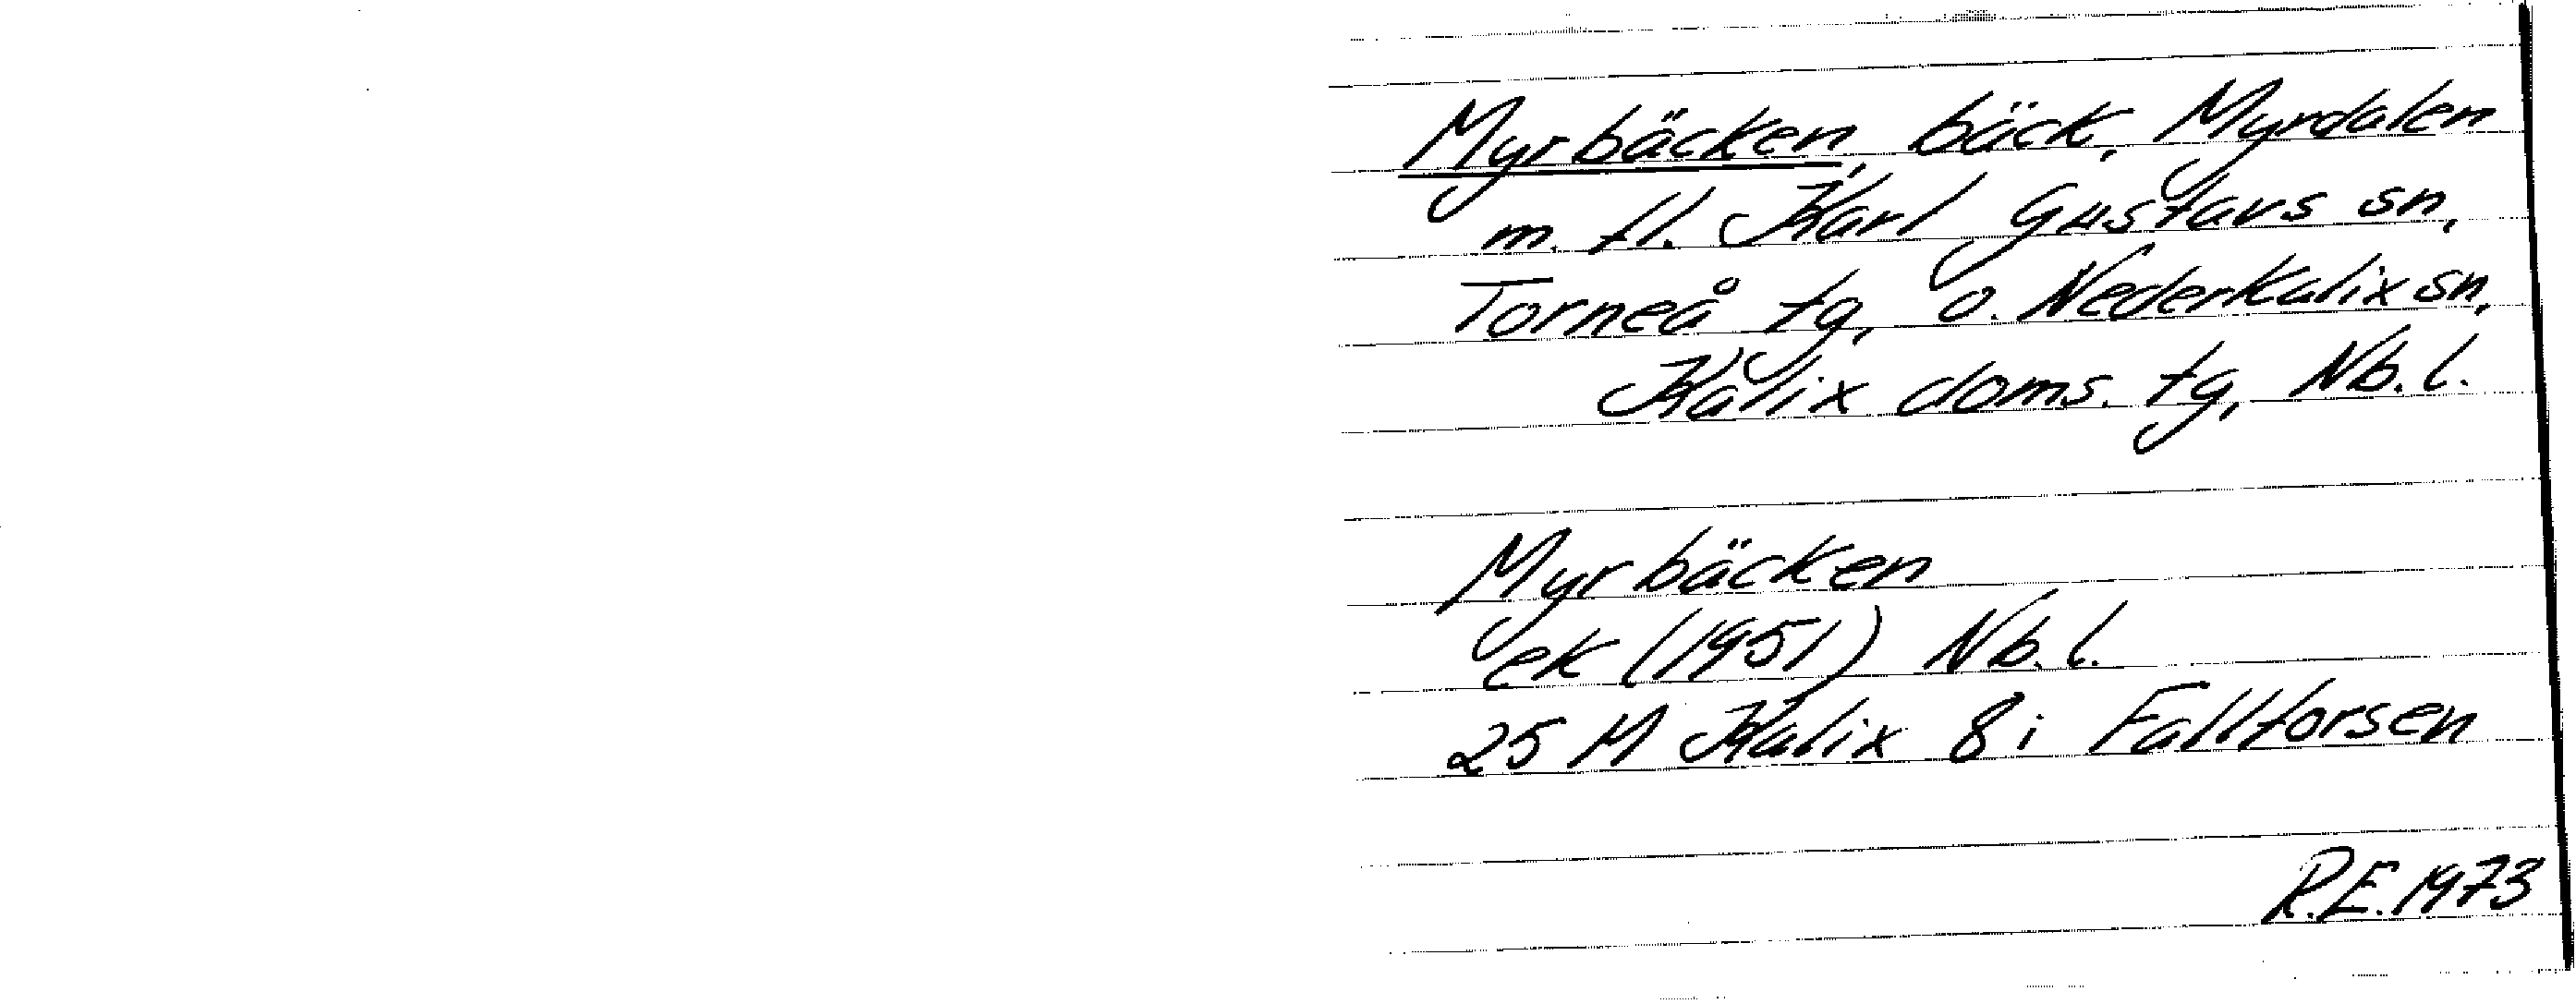 Myrbäcken, bäck, Myrdalen
m. fl. Karl Gustavs sn,
Torneå tg, o. Nederkalix sn,
Kalix doms. tg, Nb. l.
Myrbäcken
ek (1951) Nb. l.
25 M Kalix 8i Fallforsen
R.E. 1973